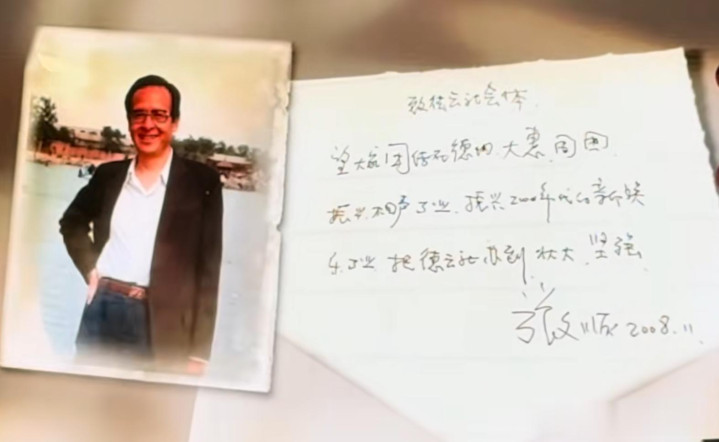 致德云社全体
望大家团结在德纲、大惠周围
振兴相声事业.振兴2000年代的新娱
乐事业 把德云社办到壮大、坚强
张文顺 2008.11.